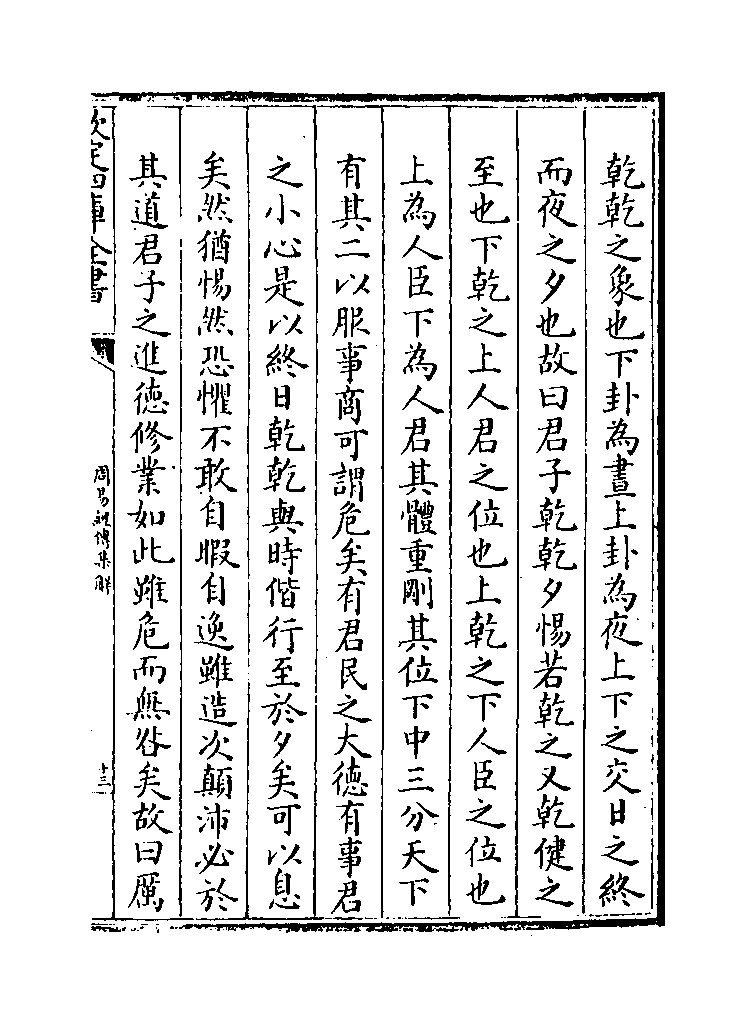 乾乾之象也下卦為晝上卦為夜上下之交日之終
而夜之夕也故曰君子乾乾夕惕若乾之又乾健之
至也下乾之上人君之位也上乾之下人臣之位也
上為人臣下為人君其體重剛其位下中三分天下
有其二以服事商可謂危矣有君民之大德有事君
之小心是以終日乾乾與時偕行至於夕矣可以息
矣然猶惕然恐懼不敢自暇自逸雖造次顛沛必於
其道君子之進德修業如此雖危而無咎矣故曰厲
欽定四庫全書
周易經傳集解
十三